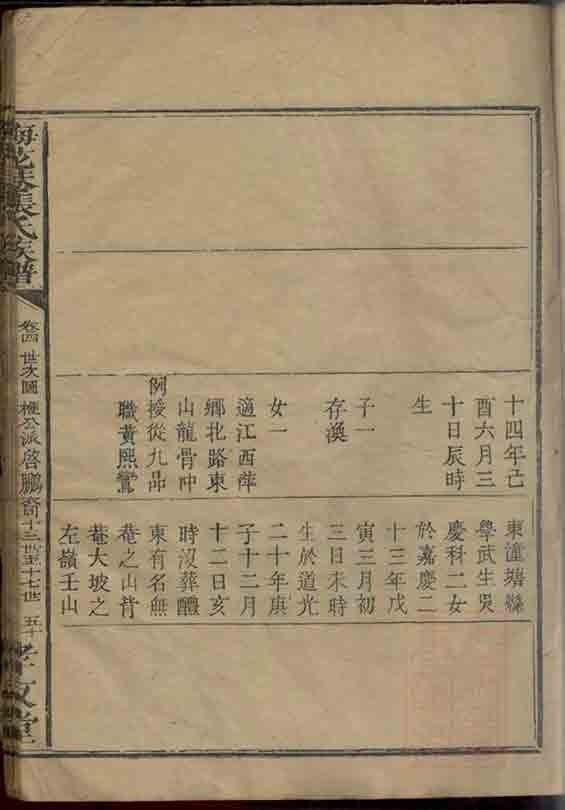 十四年己
酉六月三
十日辰時
生
子一
存渙
女一
適江西萍
鄉北路東
山龍骨冲
例授從九品
職黃熙鸞
東潼塘縣
學武生吳
慶科二女
於嘉慶二
十三年戊
寅三月初
三日未時
生於道光
二十年庚
子十二月
十二日亥
時沒葬醴
東有名無
菴之山背
菴大坡之
左嶺壬山
張氏家譜
卷四 世次圖 公派啓鵬 十三世至十七世 五十
孝友堂